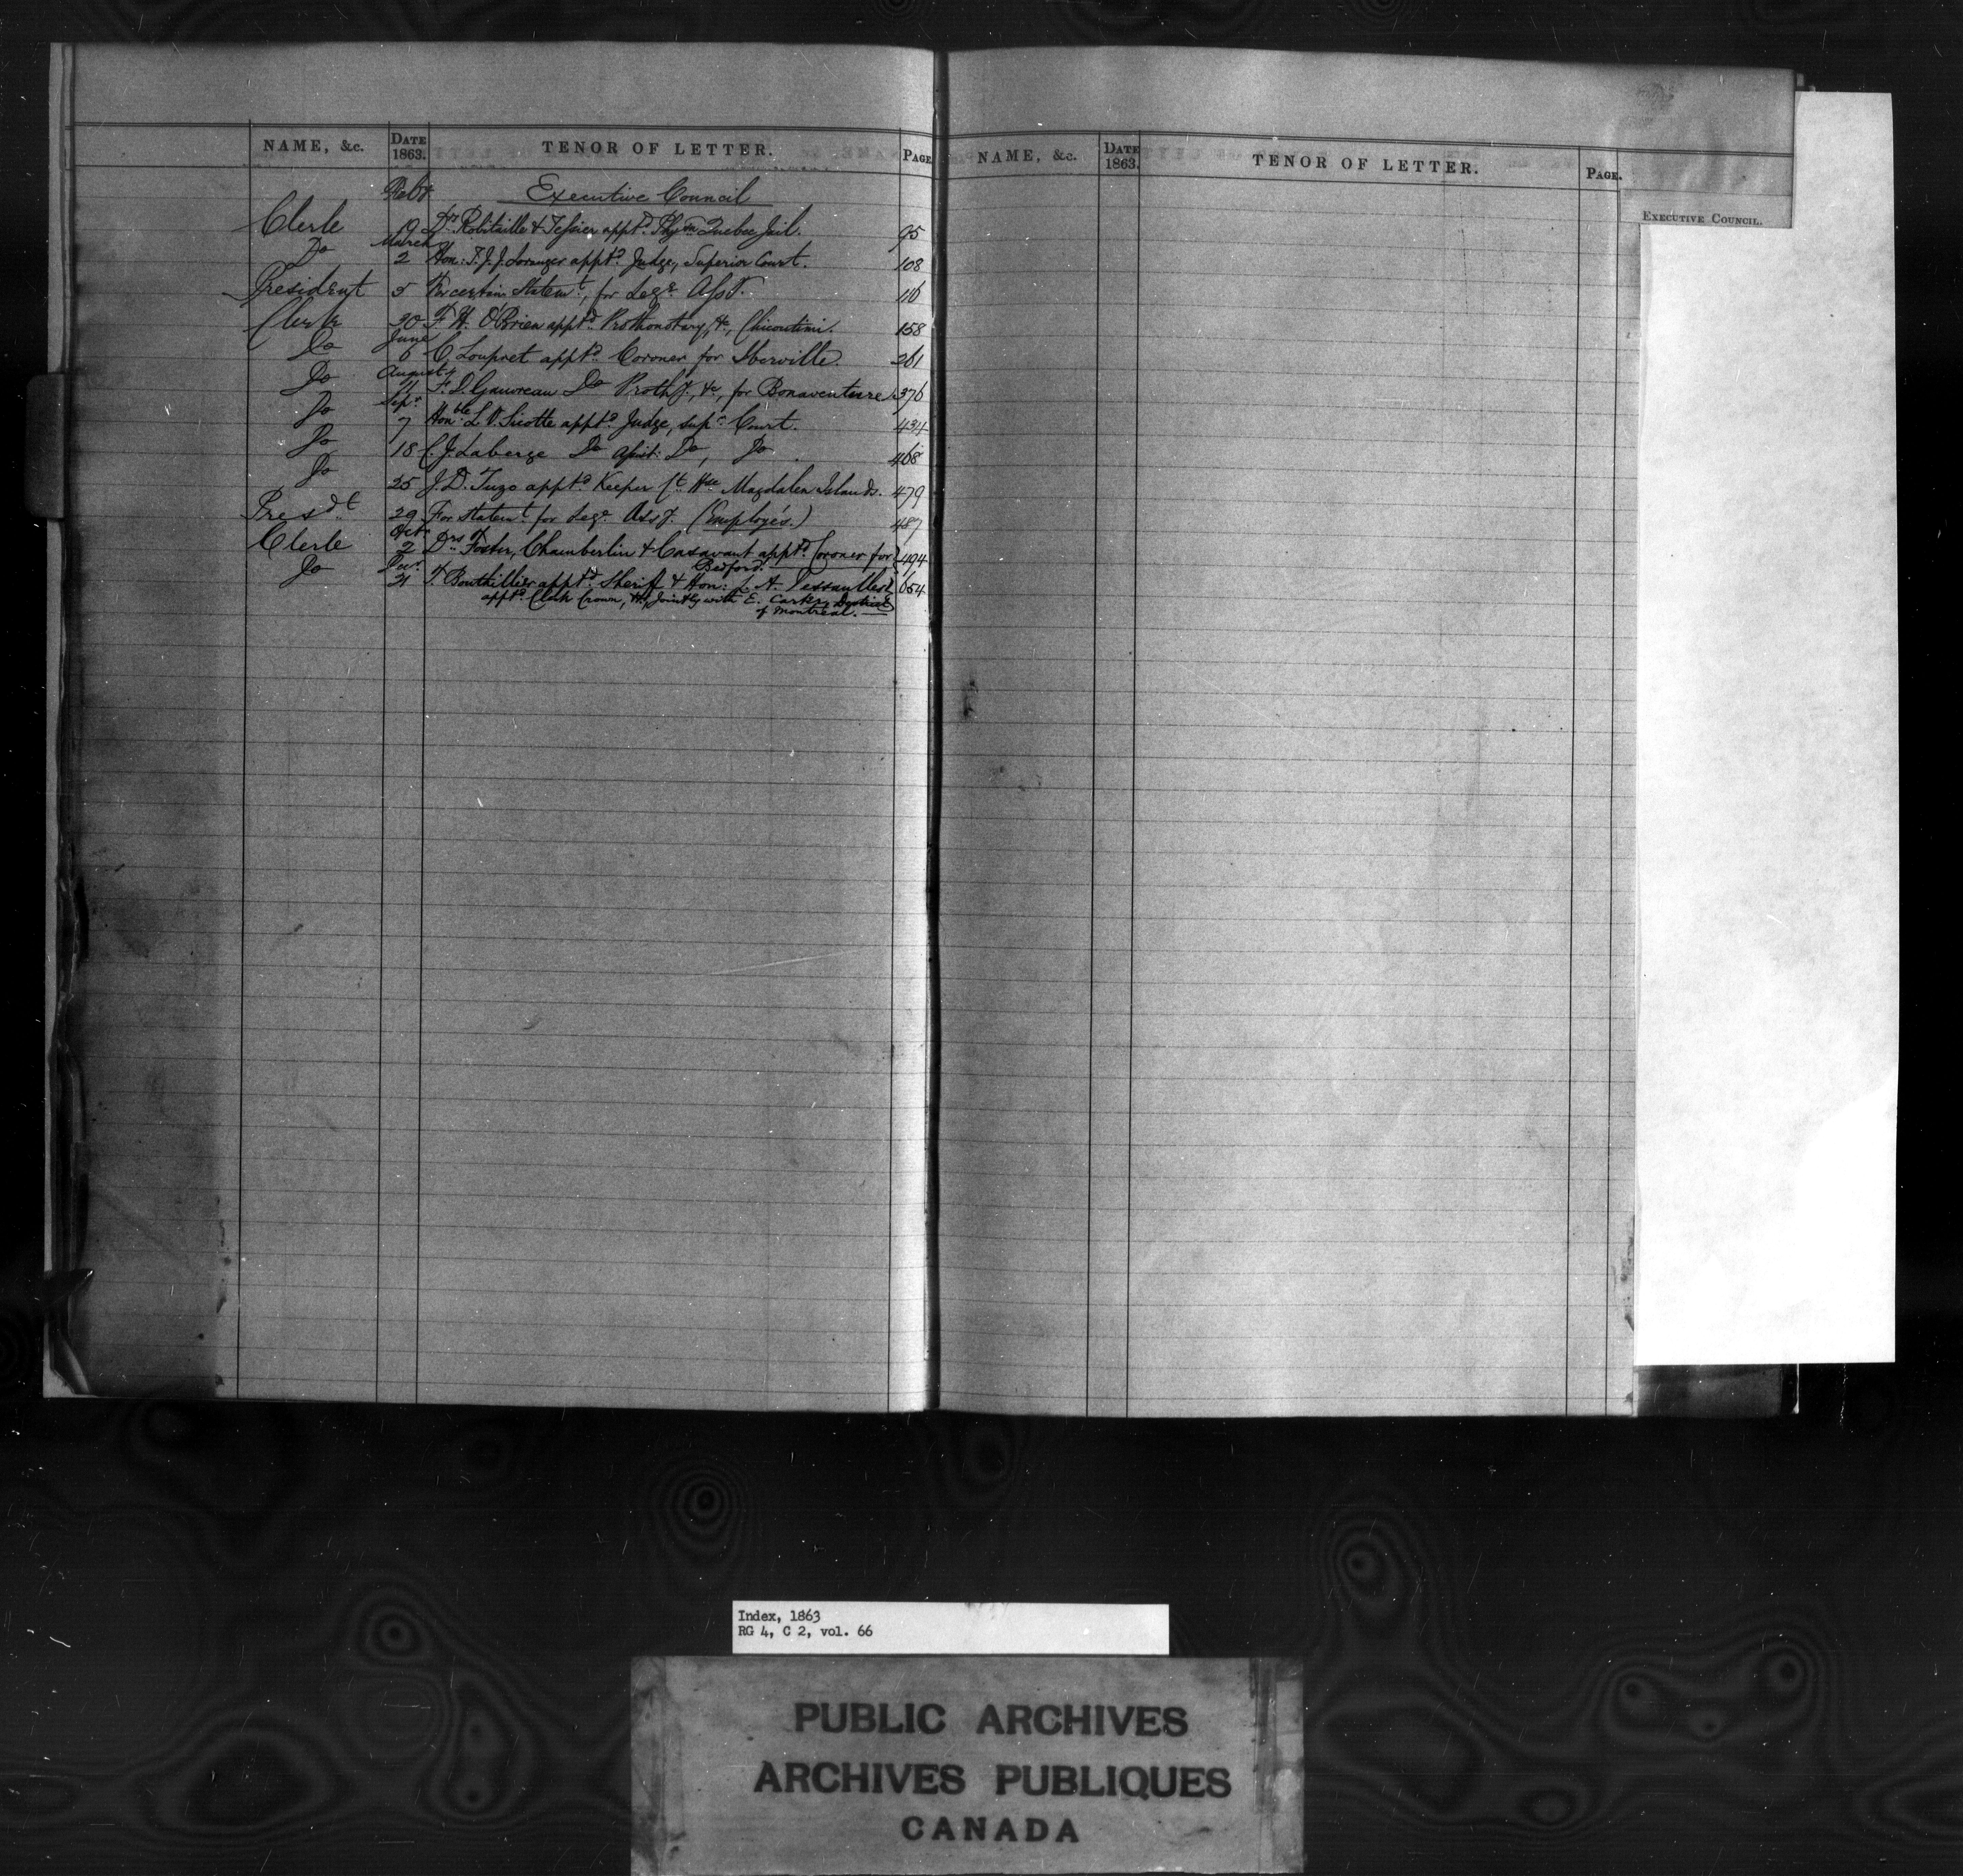 NAME, &c. DATE 1863. TENOR OF LETTER. PAGE
Feby. Executive Council
Clerk 19 Drs. Robitaille & Tessier apptd. Phyns. Quebec Jail. 95
March
Do 2 Hon: T. J. J. Loranger apptd. Judge, Superior Court. 108
President 5 For certain Statemt., for Lege. Asst. 116
Clerk 20 F. H. O'Brien apptd. Prothonotary, &c., Chicoutimi. 158
June
Do 6 C. Loupret apptd. Coroner for Iberville. 261
August
Do 11 F. D. Gauvreau Do Prothy., &c, for Bonaventure. 376
Sepr.
Do 7 Honble. L. V. Sicotte apptd. Judge, supr. Court. 434
Do 18 C. J. Laberge Do Assist: Do, Do. 468
Do 25 J. D. Tuzo apptd. Keeper Ct. Hse. Magdalen Islands. 479
Presdt. 29 For statemt. for Lege. Assy. (Employés.) 487
Octr.
Clerk 2 Drs. Foster, Chamberlin & Casavant apptd. Coroner for 494
Bedford.
Decr.
Do 31 T. Bouthillier apptd. Sheriff & Hon: L. A. Dessaulles 654
apptd. Clerk Crown, &c, Jointly with E. Carter, District
of Montreal.
NAME, &c. DATE 1863. TENOR OF LETTER. PAGE.
EXECUTIVE COUNCIL.
Index, 1863
RG 4, C 2, vol. 66
PUBLIC ARCHIVES
ARCHIVES PUBLIQUES
CANADA